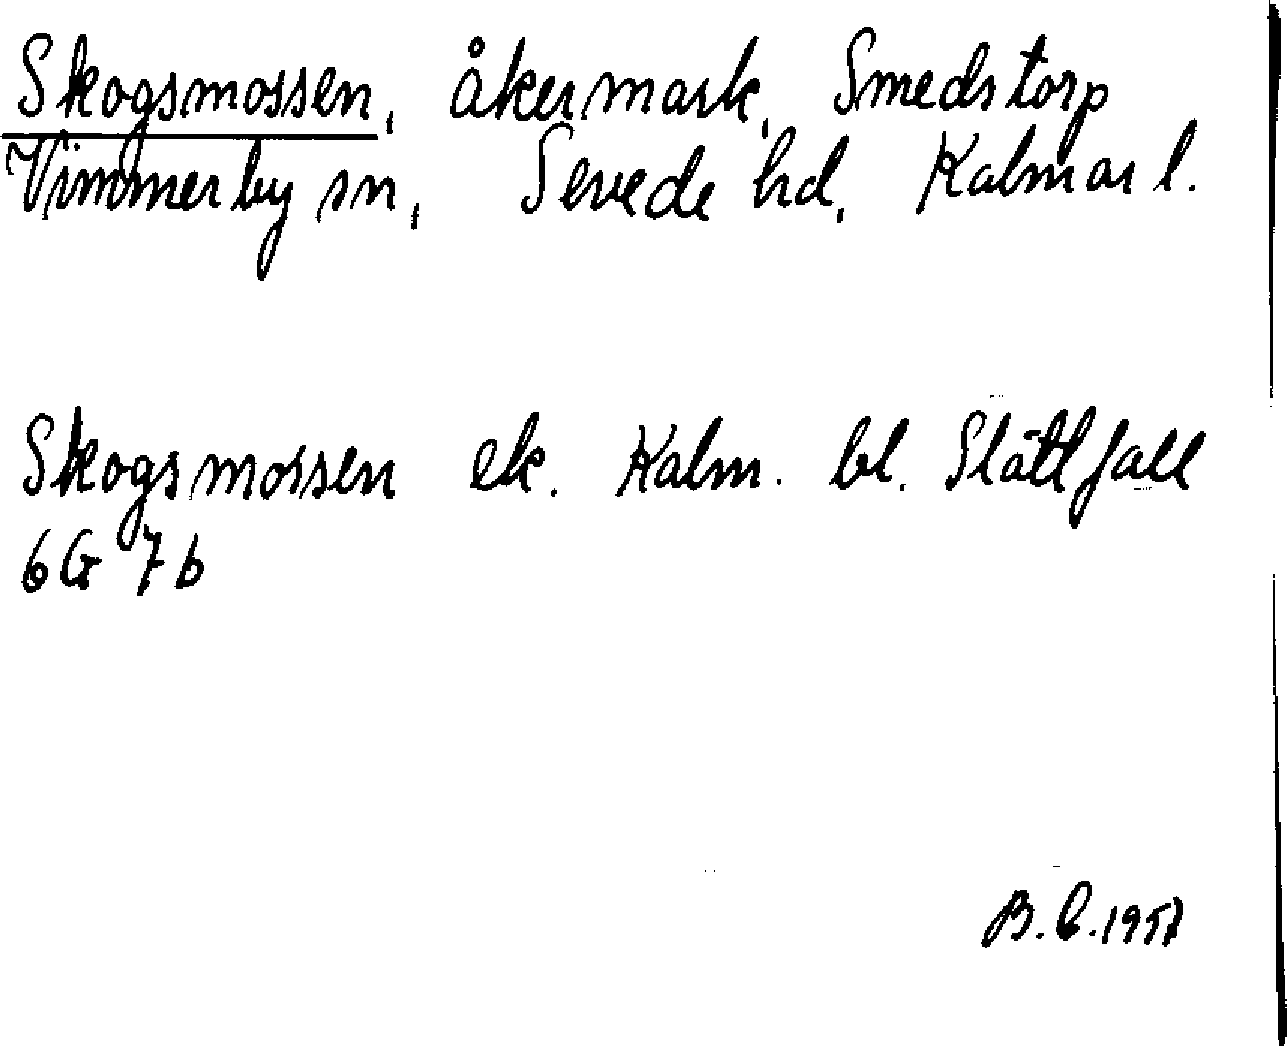 Skogsmossen, åkermark, Smedstorp
Vimmerby sn, Sevede hd, Kalmar l.
Skogsmossen ek. Kalm. bl. Slättfall
6G 7b
B.C.1957